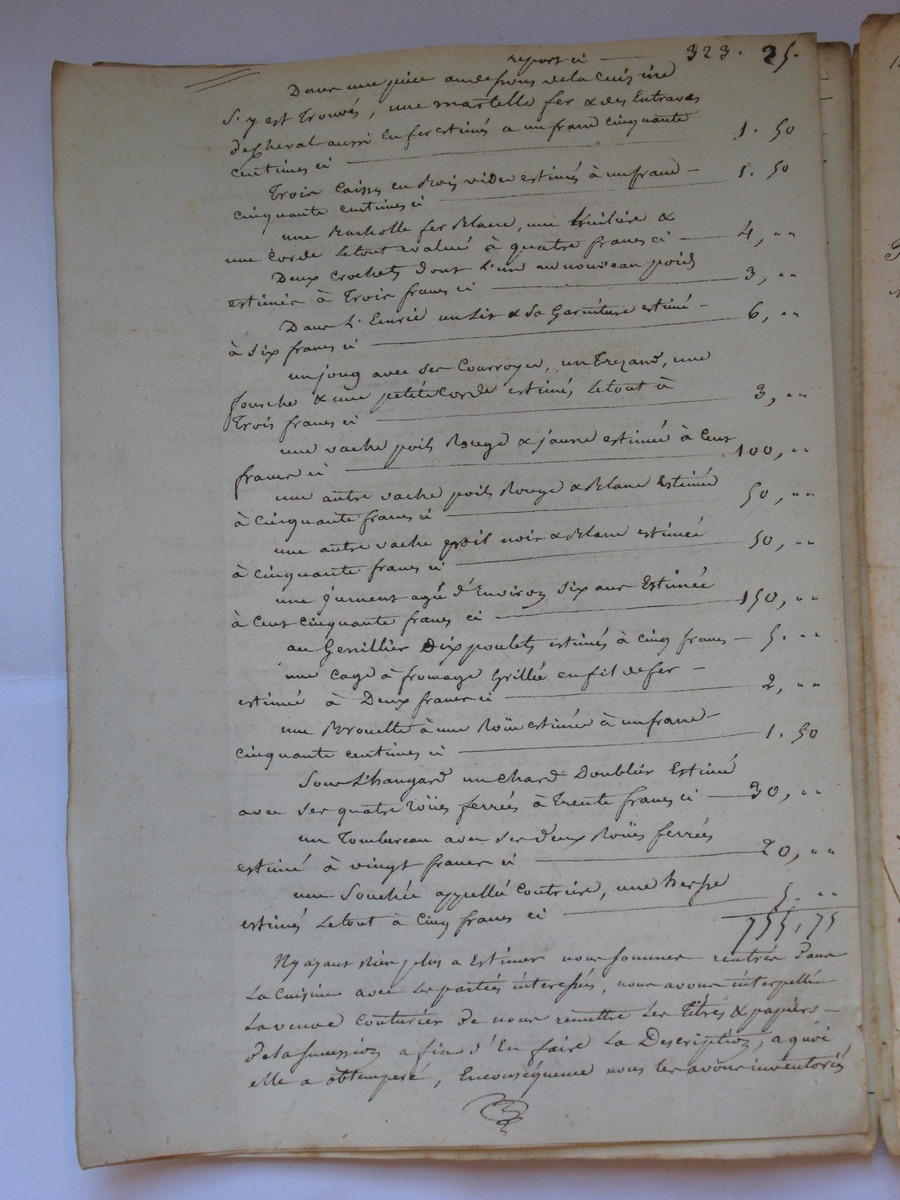 report ci — 323. 25.
Dans une pièce au dessous de la cuisine
S'y est trouvés, une martelle fer & des Entraves
de cheval aussi en fer estimés a un franc cinquante
centimes ci — 1. 50
Trois caisses en bois vides estimés à un franc —
cinquante centimes ci — 1. 50
une fer Blanc, une huiliere &
une corde le tout evalué à quatre francs ci — 4, ""
Deux crochets dont l'un au nouveau poids
estimés à trois francs ci — 3, ""
Dans l'Ecurie un Lit & sa Garniture estimé —
à six francs ci — 6, ""
un joug avec ses Courroyes, un , une
fourche & une petite Corde estimés le tout à
Trois francs ci — 3, ""
une vache poils Rouge & jaune estimée à Cent
francs ci — 100, ""
une autre vache poils Rouge & Blanc Estimée
à cinquante francs ci — 50, ""
une autre vache poil noir & Blanc estimée
à cinquante francs ci — 50, ""
une jument agé d'Environ six ans Estimée
à Cent cinquante francs ci — 150, ""
au Genillier Dix poulets estimés à cinq francs — 5. ""
une cage à fromage Grillée en fil de fer —
estimée à Deux francs ci — 2, ""
une Brouette à une Roüe estimée à un franc —
cinquante centimes ci — 1. 50
Sous l'hangard un chard Doublier Estimé
avec ses quatre roües ferrées à Trente francs ci — 30, ""
un Tombereau avec ses deux Roües ferrées
estimé à vingt francs ci — 20, ""
une appellée coutriere, une herse
estimés le tout à Cinq francs ci — 5. ""
755, 75
N'y ayant Rien plus a Estimer nous sommes rentrés dans
La Cuisine avec les parties intéressés, nous avons interpellé
La veuve couturier de nous remettre les Titres & papiers —
de la succession a fin d'En faire La Description, a quoi
elle a obtemperé, En conséquence nous les avons inventoriés